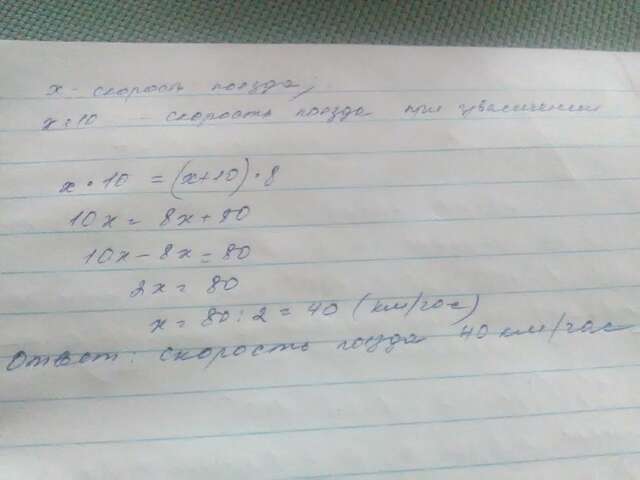 x - скорость поезда,
x+10 - скорость поезда при увеличении
x • 10 = (x+10) • 8
10x = 8x + 80
10x - 8x = 80
2x = 80
x = 80 : 2 = 40 (км/час)
Ответ: скорость поезда 40 км/час